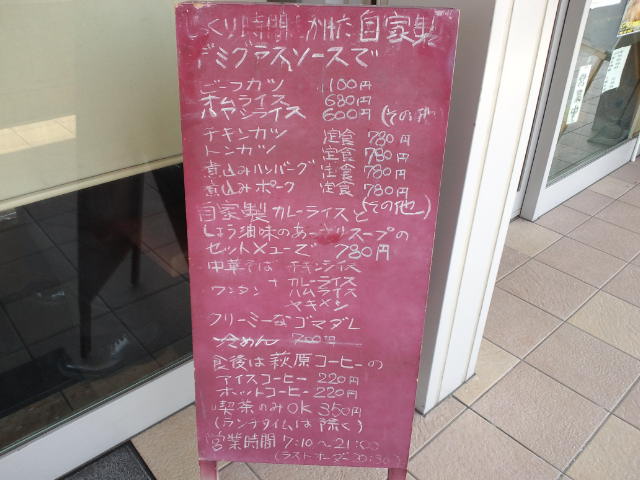 じっくり時間かけた自家製
デミグラスソースで
ビーフカツ 1100円
オムライス 680円
ハヤシライス 600円 (その他
チキンカツ 定食 780円
トンカツ 定食 780円
煮込みハンバーグ 定食 780円
煮込みポーク 定食 780円
(その他)
自家製カレーライスと
しょう油味のあっさりスープの
セットメニューで 780円
中華そば チキンライス
+ カレーライス
ワンタン ハムライス
ヤキメシ
クリーミーなゴマダレ
冷めん 700円
食後は萩原コーヒーの
アイスコーヒー 220円
ホットコーヒー 220円
喫茶のみOK 350円
(ランチタイムは除く)
営業時間 7:10〜21:00
(ラストオーダー20:30)